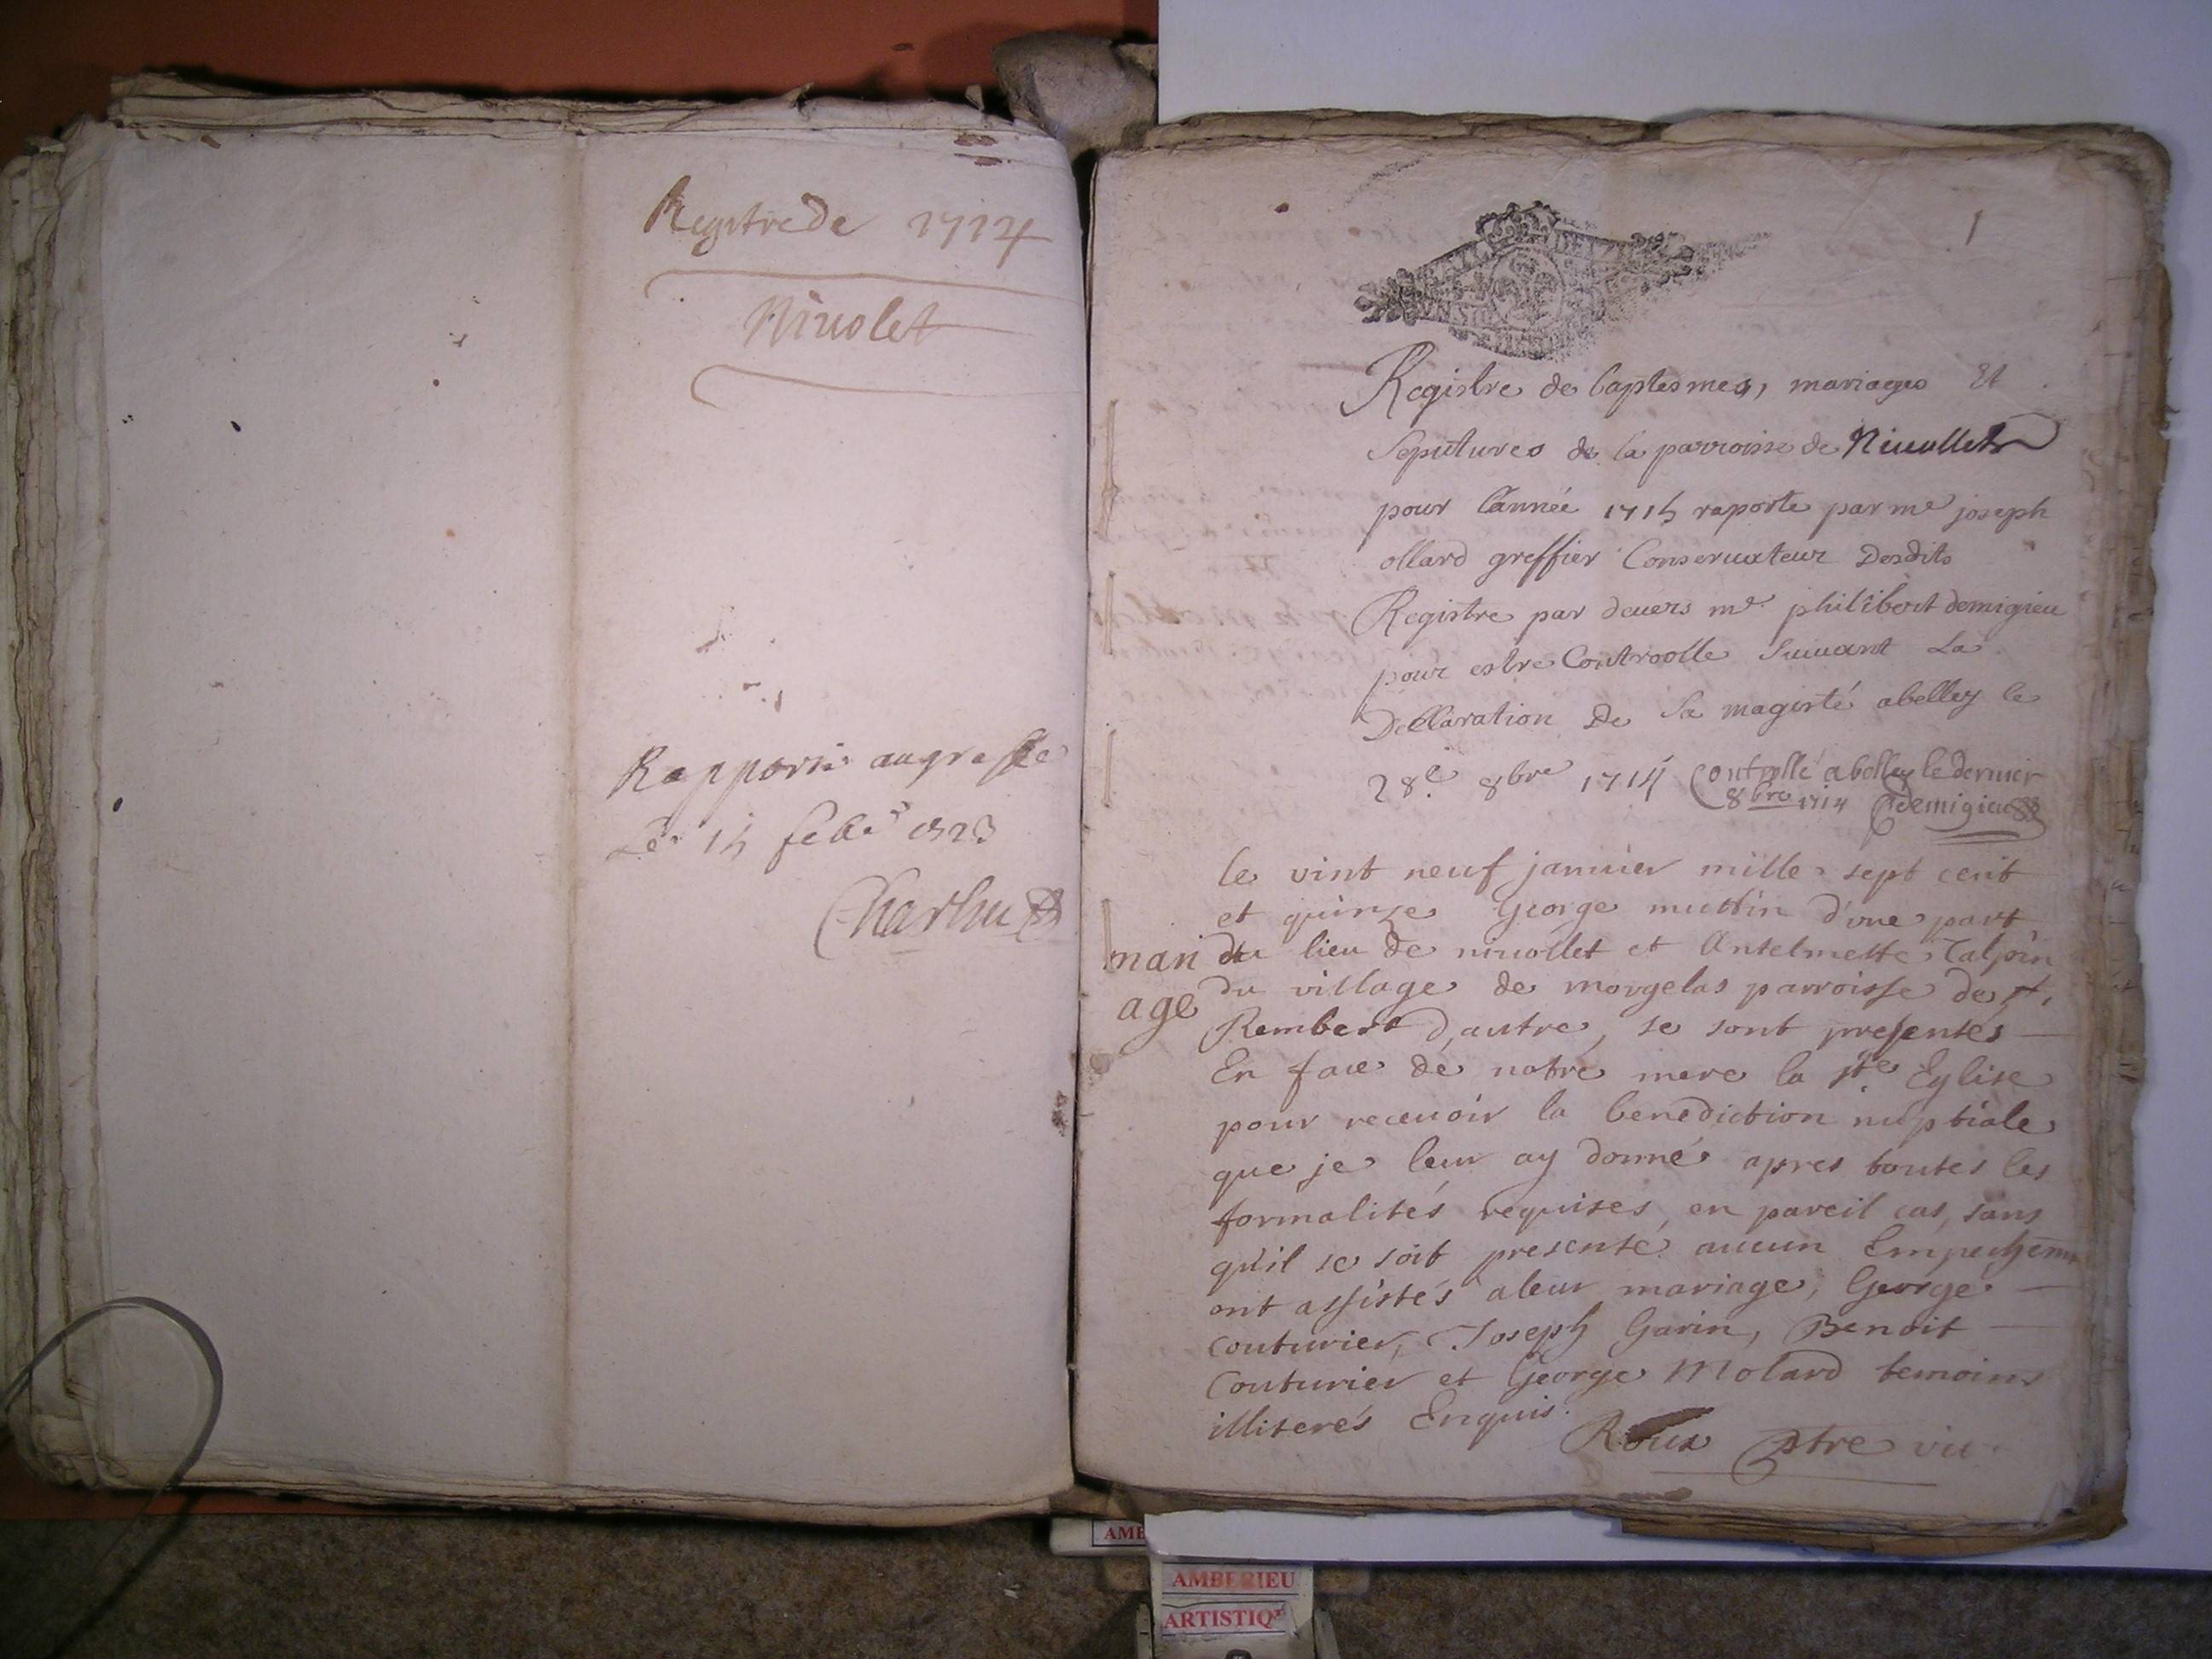 Registre de 1714
Niuolet
Rapporté au greffe
Le 15 feb.er 1723
1
Registre de baptesmes, mariages Et
Sepultures de la parroisse de Niuollet
pour l'année 1715 raporte par me joseph
ollard greffier Conseruateur Desdits
Registre par deuers me philibert demigieu
pour estre Controolle Suiuant La
Declaration De Sa magesté abelley le
28e 8bre 1714 Controllé abelley le dernier
8bre 1714 demigieu
le vint neuf januier mille sept cent
et quinze George muttin d'vne part
mari du lieu de niuollet et Antelmette Talpin
age du village de morgelas parroisse de st.
Rembert d,autre, se sont presentés
En face de notre mere la ste Eglise
pour receuoir la benediction nuptiale
que je leur ay donné apres toutes les
formalités requises, en pareil cas, sans
qu'il se soit presenté aucun Empechem
ont assistés aleur mariage, George
couturier, Joseph Garin, Benoit
Couturier et George Molard temoins
illiterés Enquis.
Roux ptre vic
AMBERIEU
ARTISTIQ